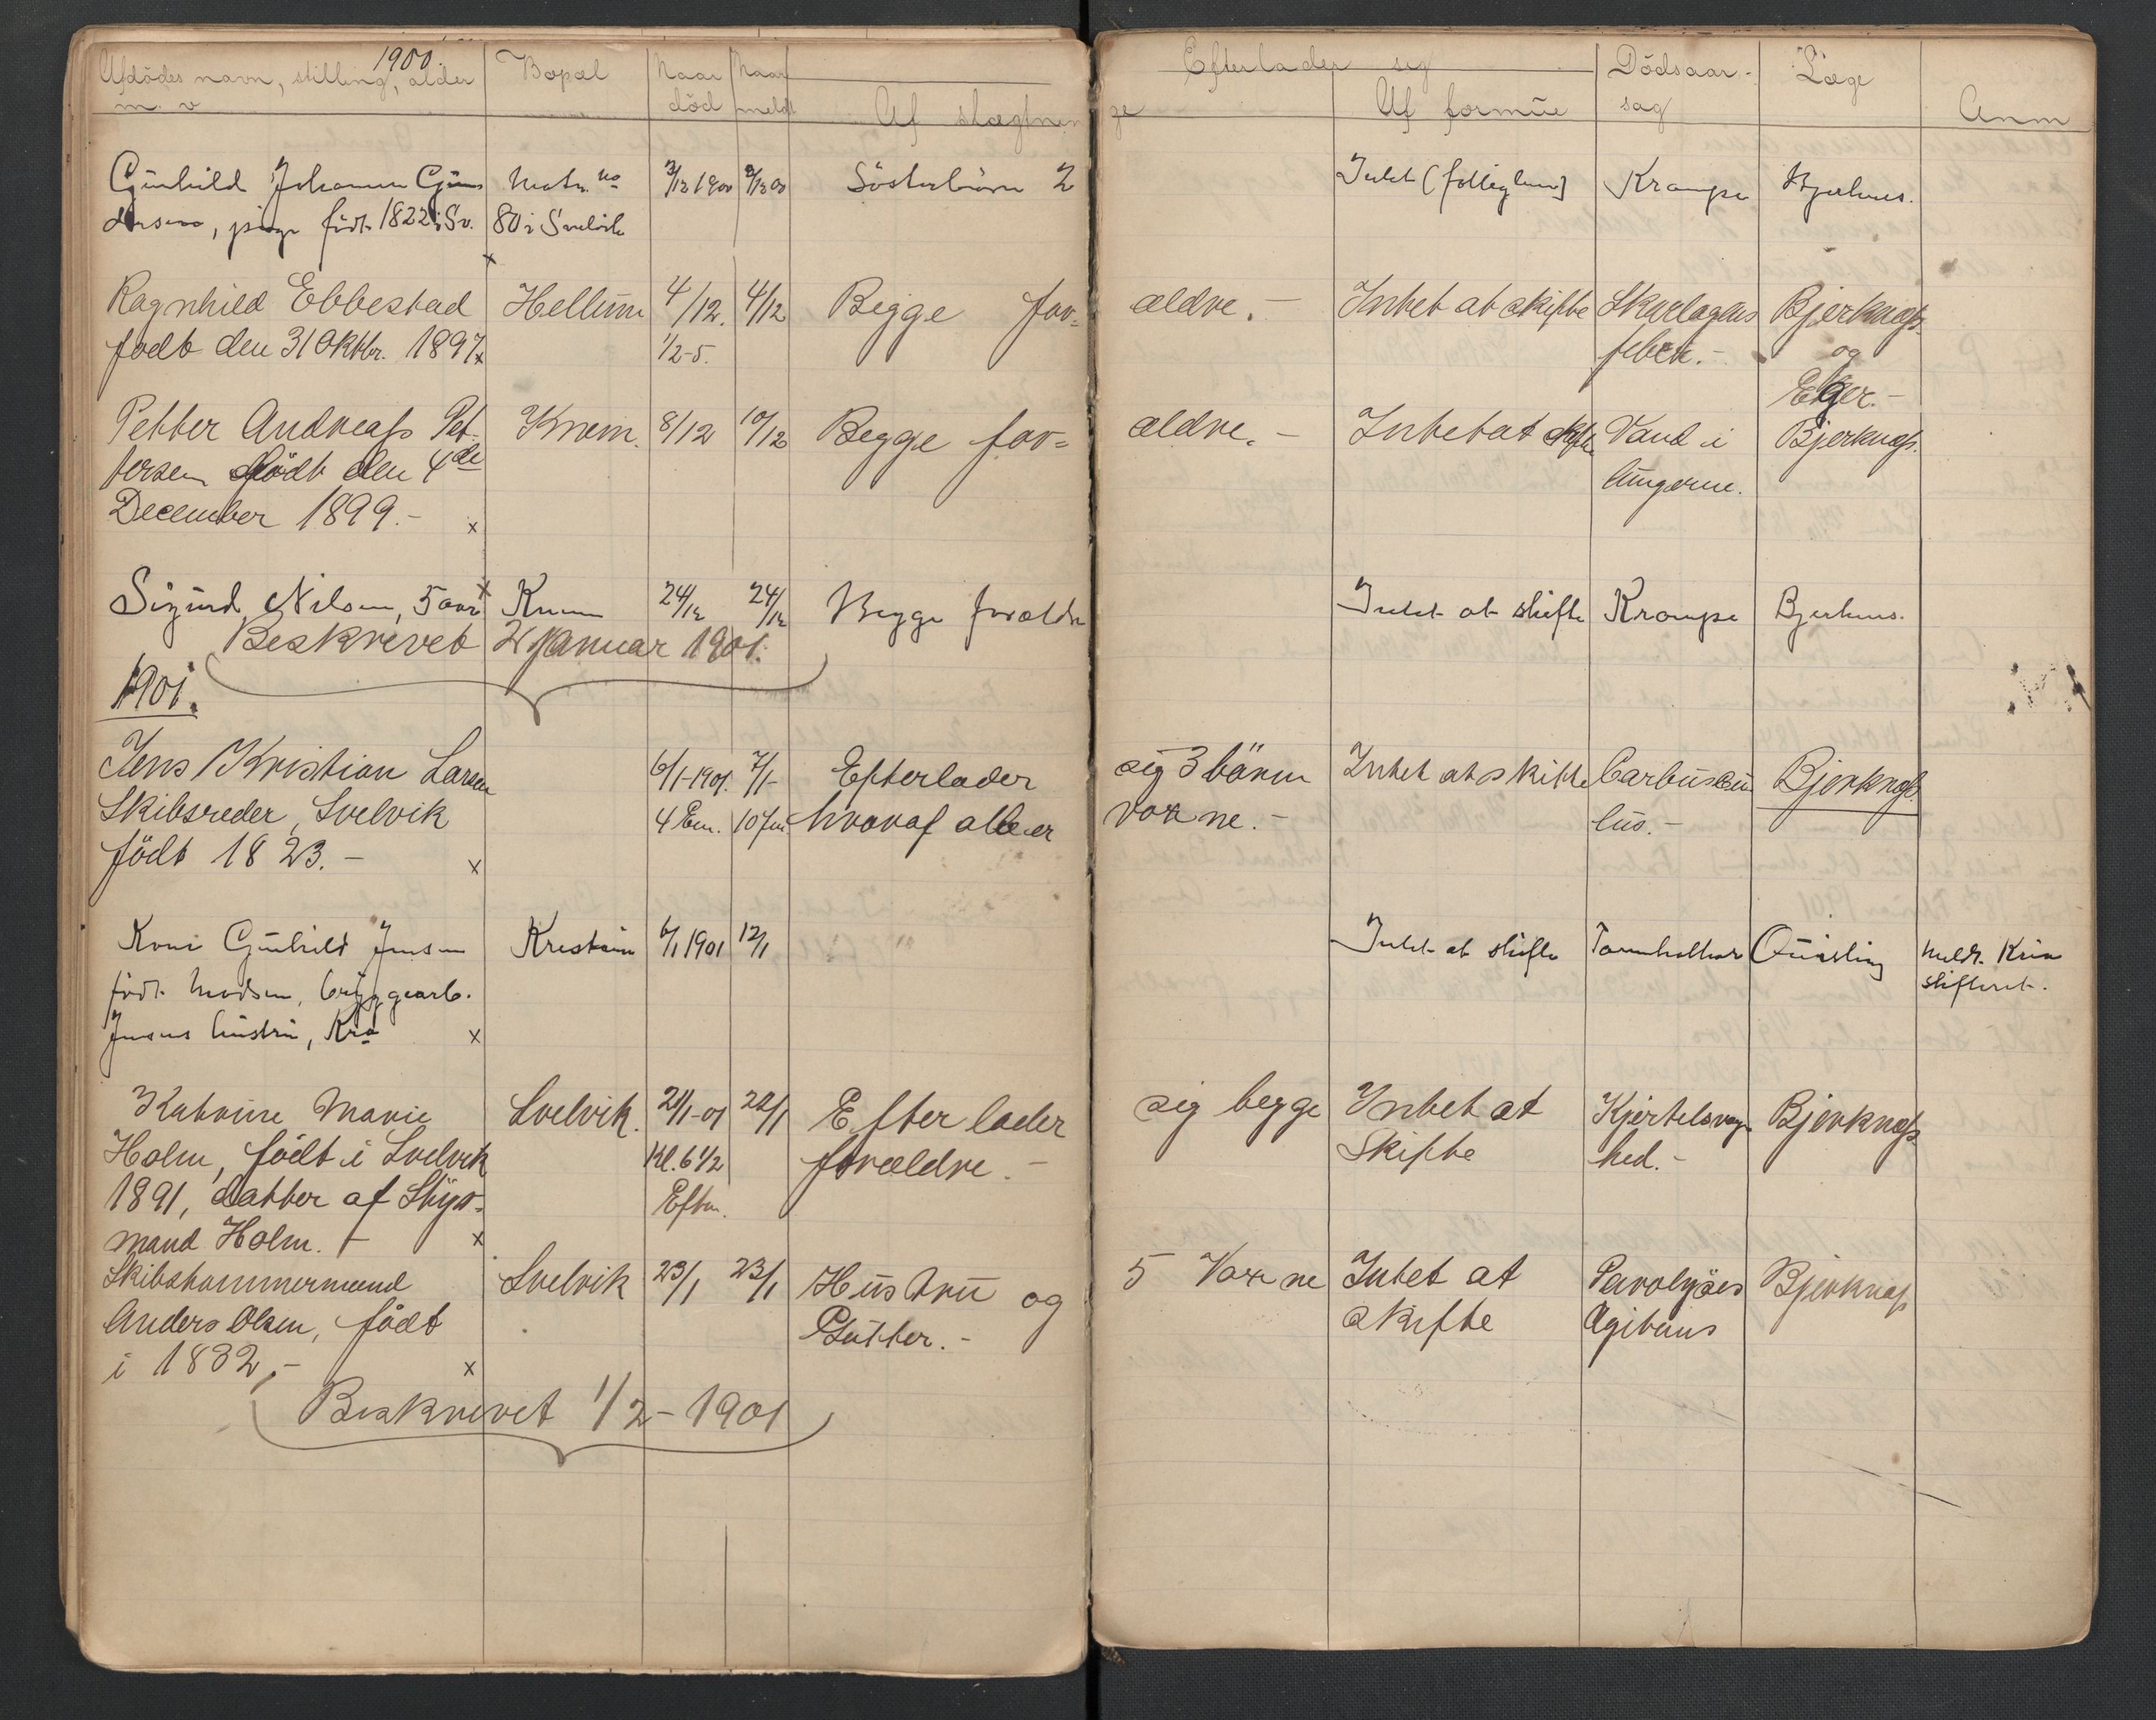 1900.
Afdödes navn, stilling, alder m. v
Bopæl
Naar död
Naar meldt
Efterlader sig
Af slægtninge
Af formue
Dödsaarsag
Læge
Anm
Gunhild Johanne Gun Matr. no 3/12 1900 3/12 00 Søsterbørn 2 Intet (fattiglem) Krampe Bjerknes.
dersen, pige født 1822 i Sv. 80 i Svelvik
Ragnhild Ebbestad Hellum 4/12. 4/12 Begge for= ældre. - Intet at skifte Skarlagens Bjerknæs.
født den 31 Oktbr. 1897 x 1/2-5. feber. - og
Eger. -
Petter Andreas Pet- Knem. 8/12 10/12 Begge for= ældre. - Intet at skifte Vand i Bjerknæs.
tersen født den 4de lungerne.
December 1899. - x
Sigurd Nilsen, 5 aar x Knem 24/12 24/12 Begge forældre Intet at skifte Krampe Bjerknes.
Beskrevet 2 Januar 1901.
1901.
Jens Kristian Larsen 6/1-1901. 7/1- Efterlader sig 3 børn Intet at skifte Carbunku Bjerknæs.
Skibsreder, Svelvik 4 Em. 10 fm. hvoraf alle er voxne. - lus. -
født 1823. - x
Koni Gunhild Jensen Kristiania 6/1 1901 12/1 Intet at skifte Quisling Meldt Kria
født Madsen, bryggearb. skifteret.
Jensens hustru, Kra x
Katrine Marie Svelvik. 21/1-01 22/1 Efterlader sig begge Intet at Kjertelsvag Bjerknæs
Holm, født i Svelvik Kl. 6 1/2 forældre. - Skifte hed. -
1891, datter af Styr- Eftm.
mand Holm. - x
Skibstømmermand Svelvik 23/1 23/1 Hustru og 5 Voxne Intet at Paralysis Bjerknæs
Anders Olsen, født Døtter. - skifte Agitans
i 1832, - x
Beskrevet 1/2 - 1901